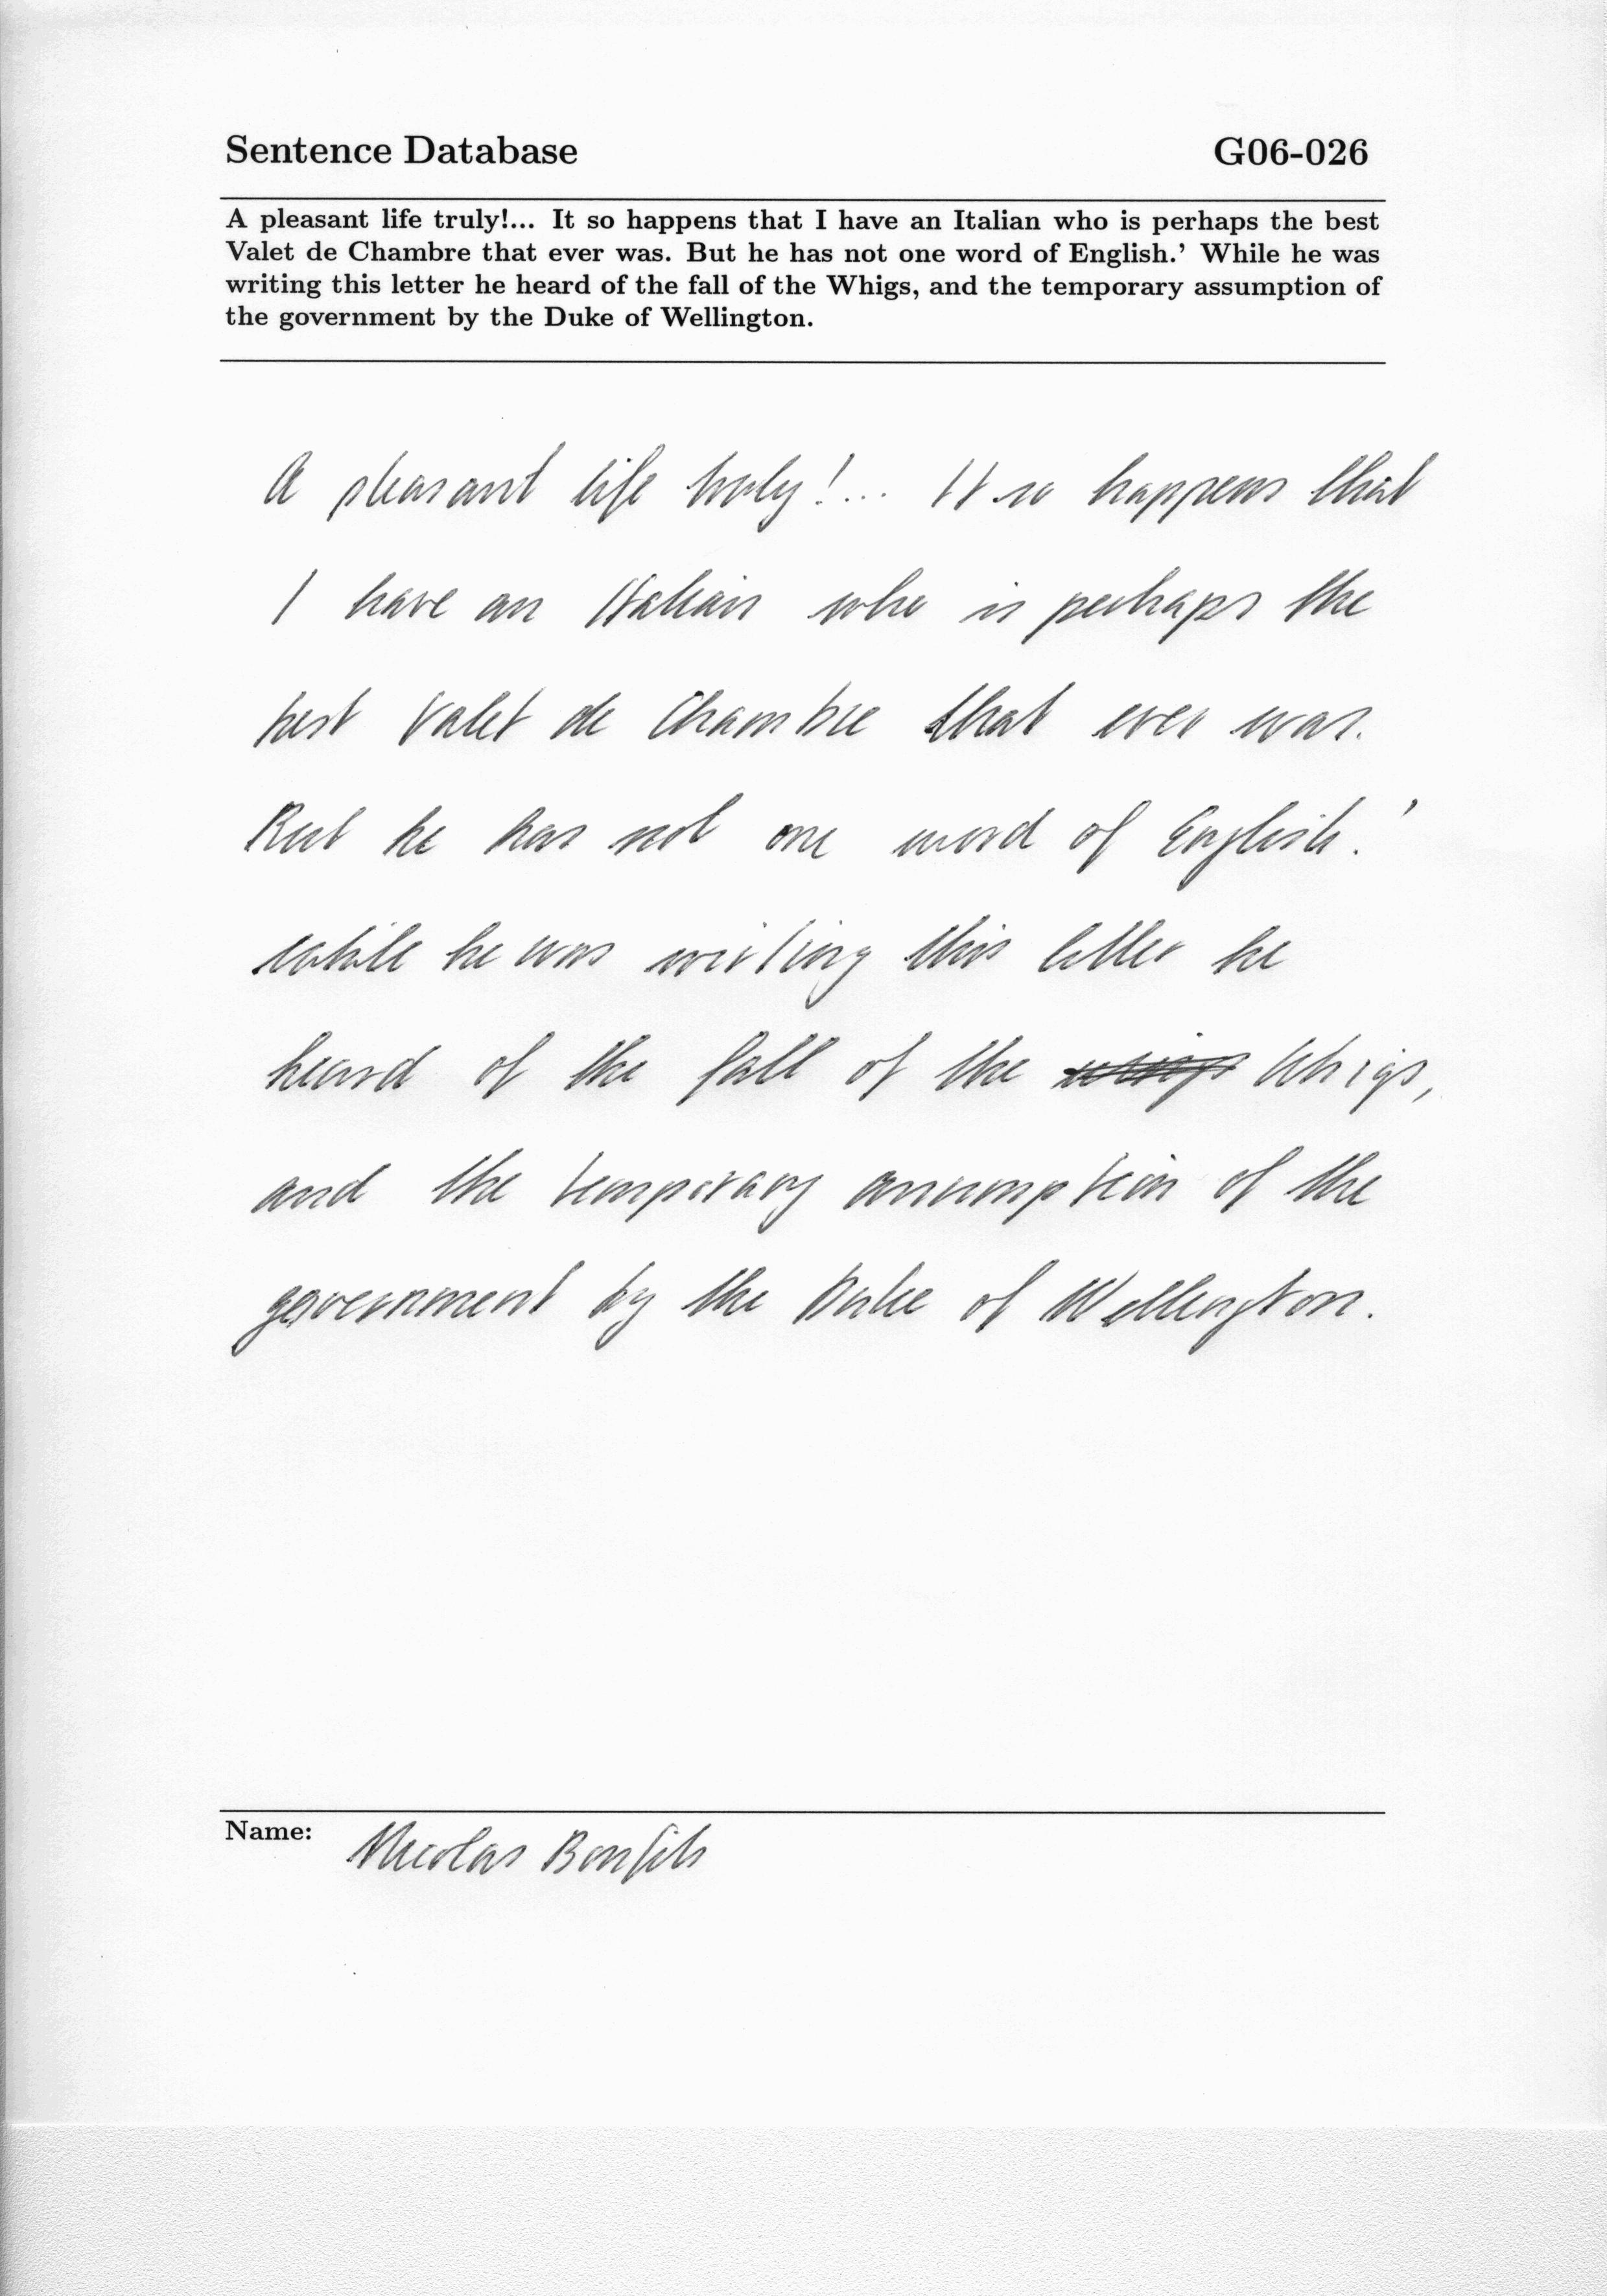 Sentence Database G06-026
A pleasant life truly!... It so happens that I have an Italian who is perhaps the best
Valet de Chambre that ever was. But he has not one word of English.’ While he was
writing this letter he heard of the fall of the Whigs, and the temporary assumption of
the government by the Duke of Wellington.
A pleasant life truly!... It so happens that
I have an Italian who is perhaps the
best Valet de Chambre that ever was.
But he has not one word of English.’
while he was writing this letter he
heard of the fall of the Whigs,
and the temporary assumption of the
government by the Duke of Wellington.
Name: Nicolas Bonfils